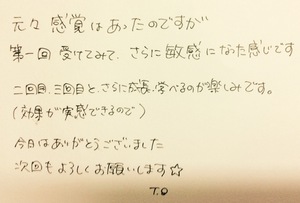 元々感覚はあったのですが
第一回受けてみて、さらに敏感になった感じです
二回目、三回目と、さらに成長、学べるのが楽しみです。
(効果が実感できるので)
今日はありがとうございました
次回もよろしくお願いします☆
T.O